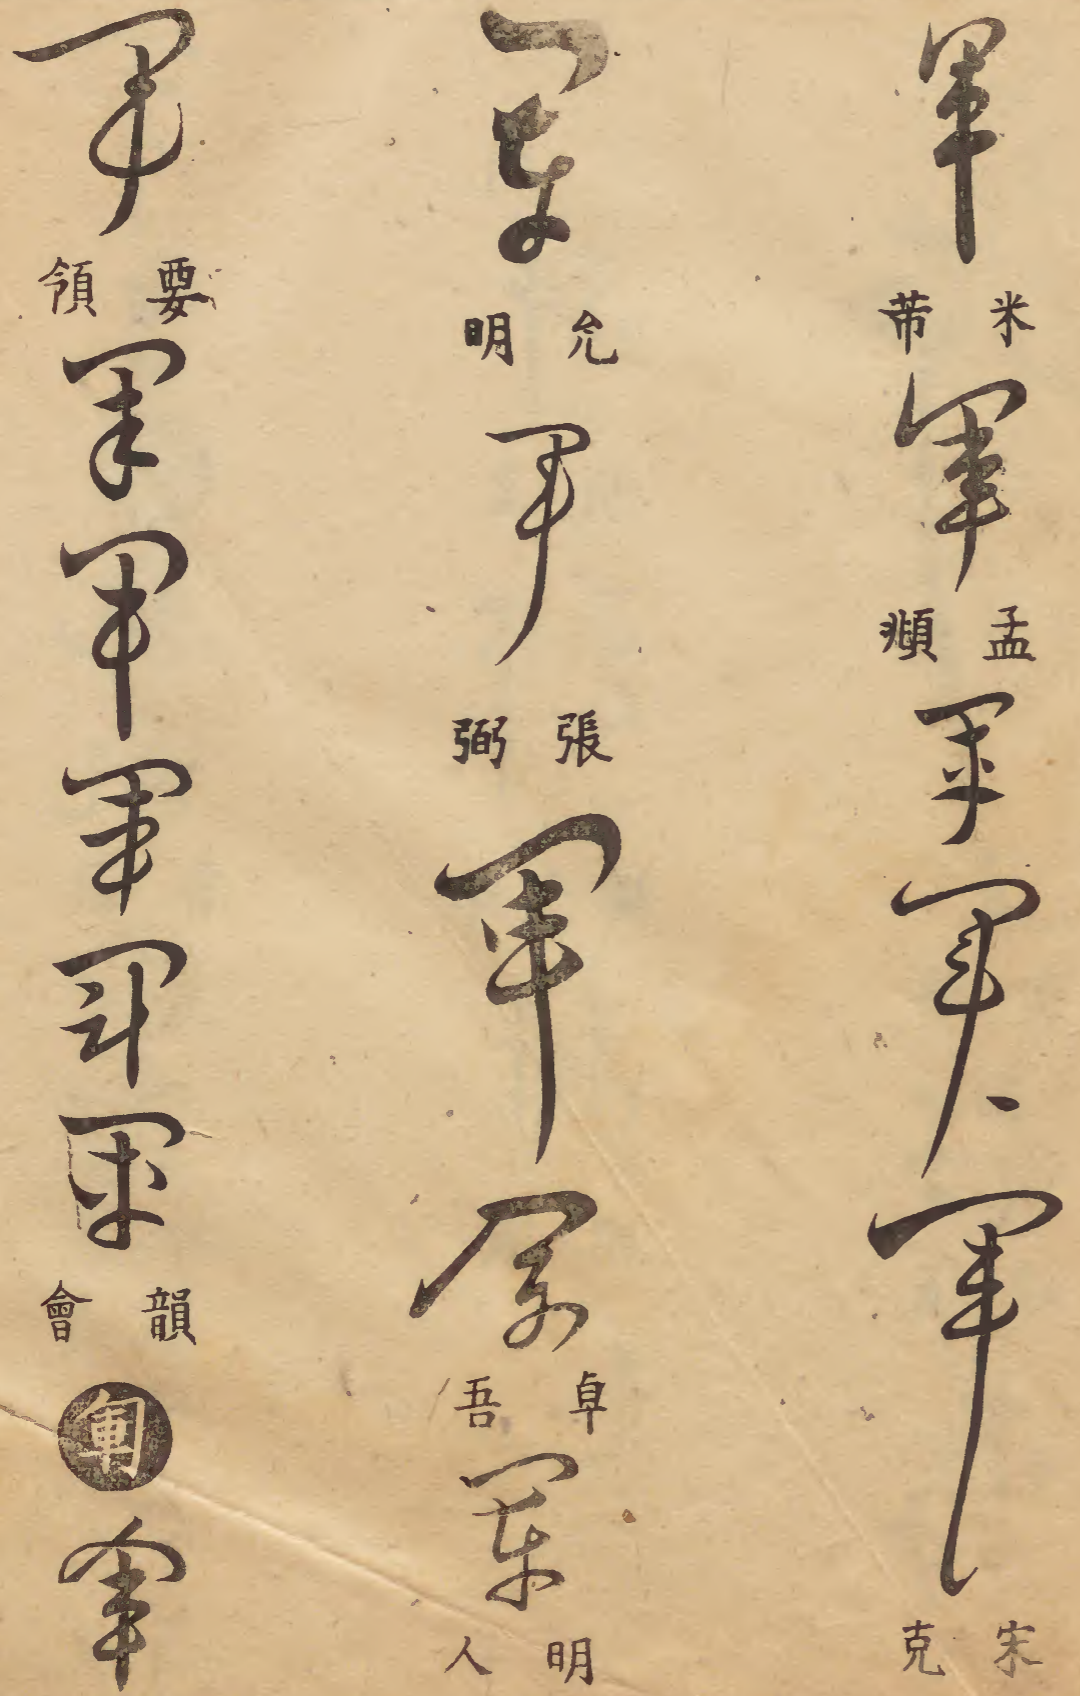 軍
米芾
軍
孟頫
軍
軍
軍
宋克
軍
允明
軍
張弼
軍
軍
卓吾
軍
明人
軍
要領
軍
軍
軍
軍
軍
韻會
軍
軍